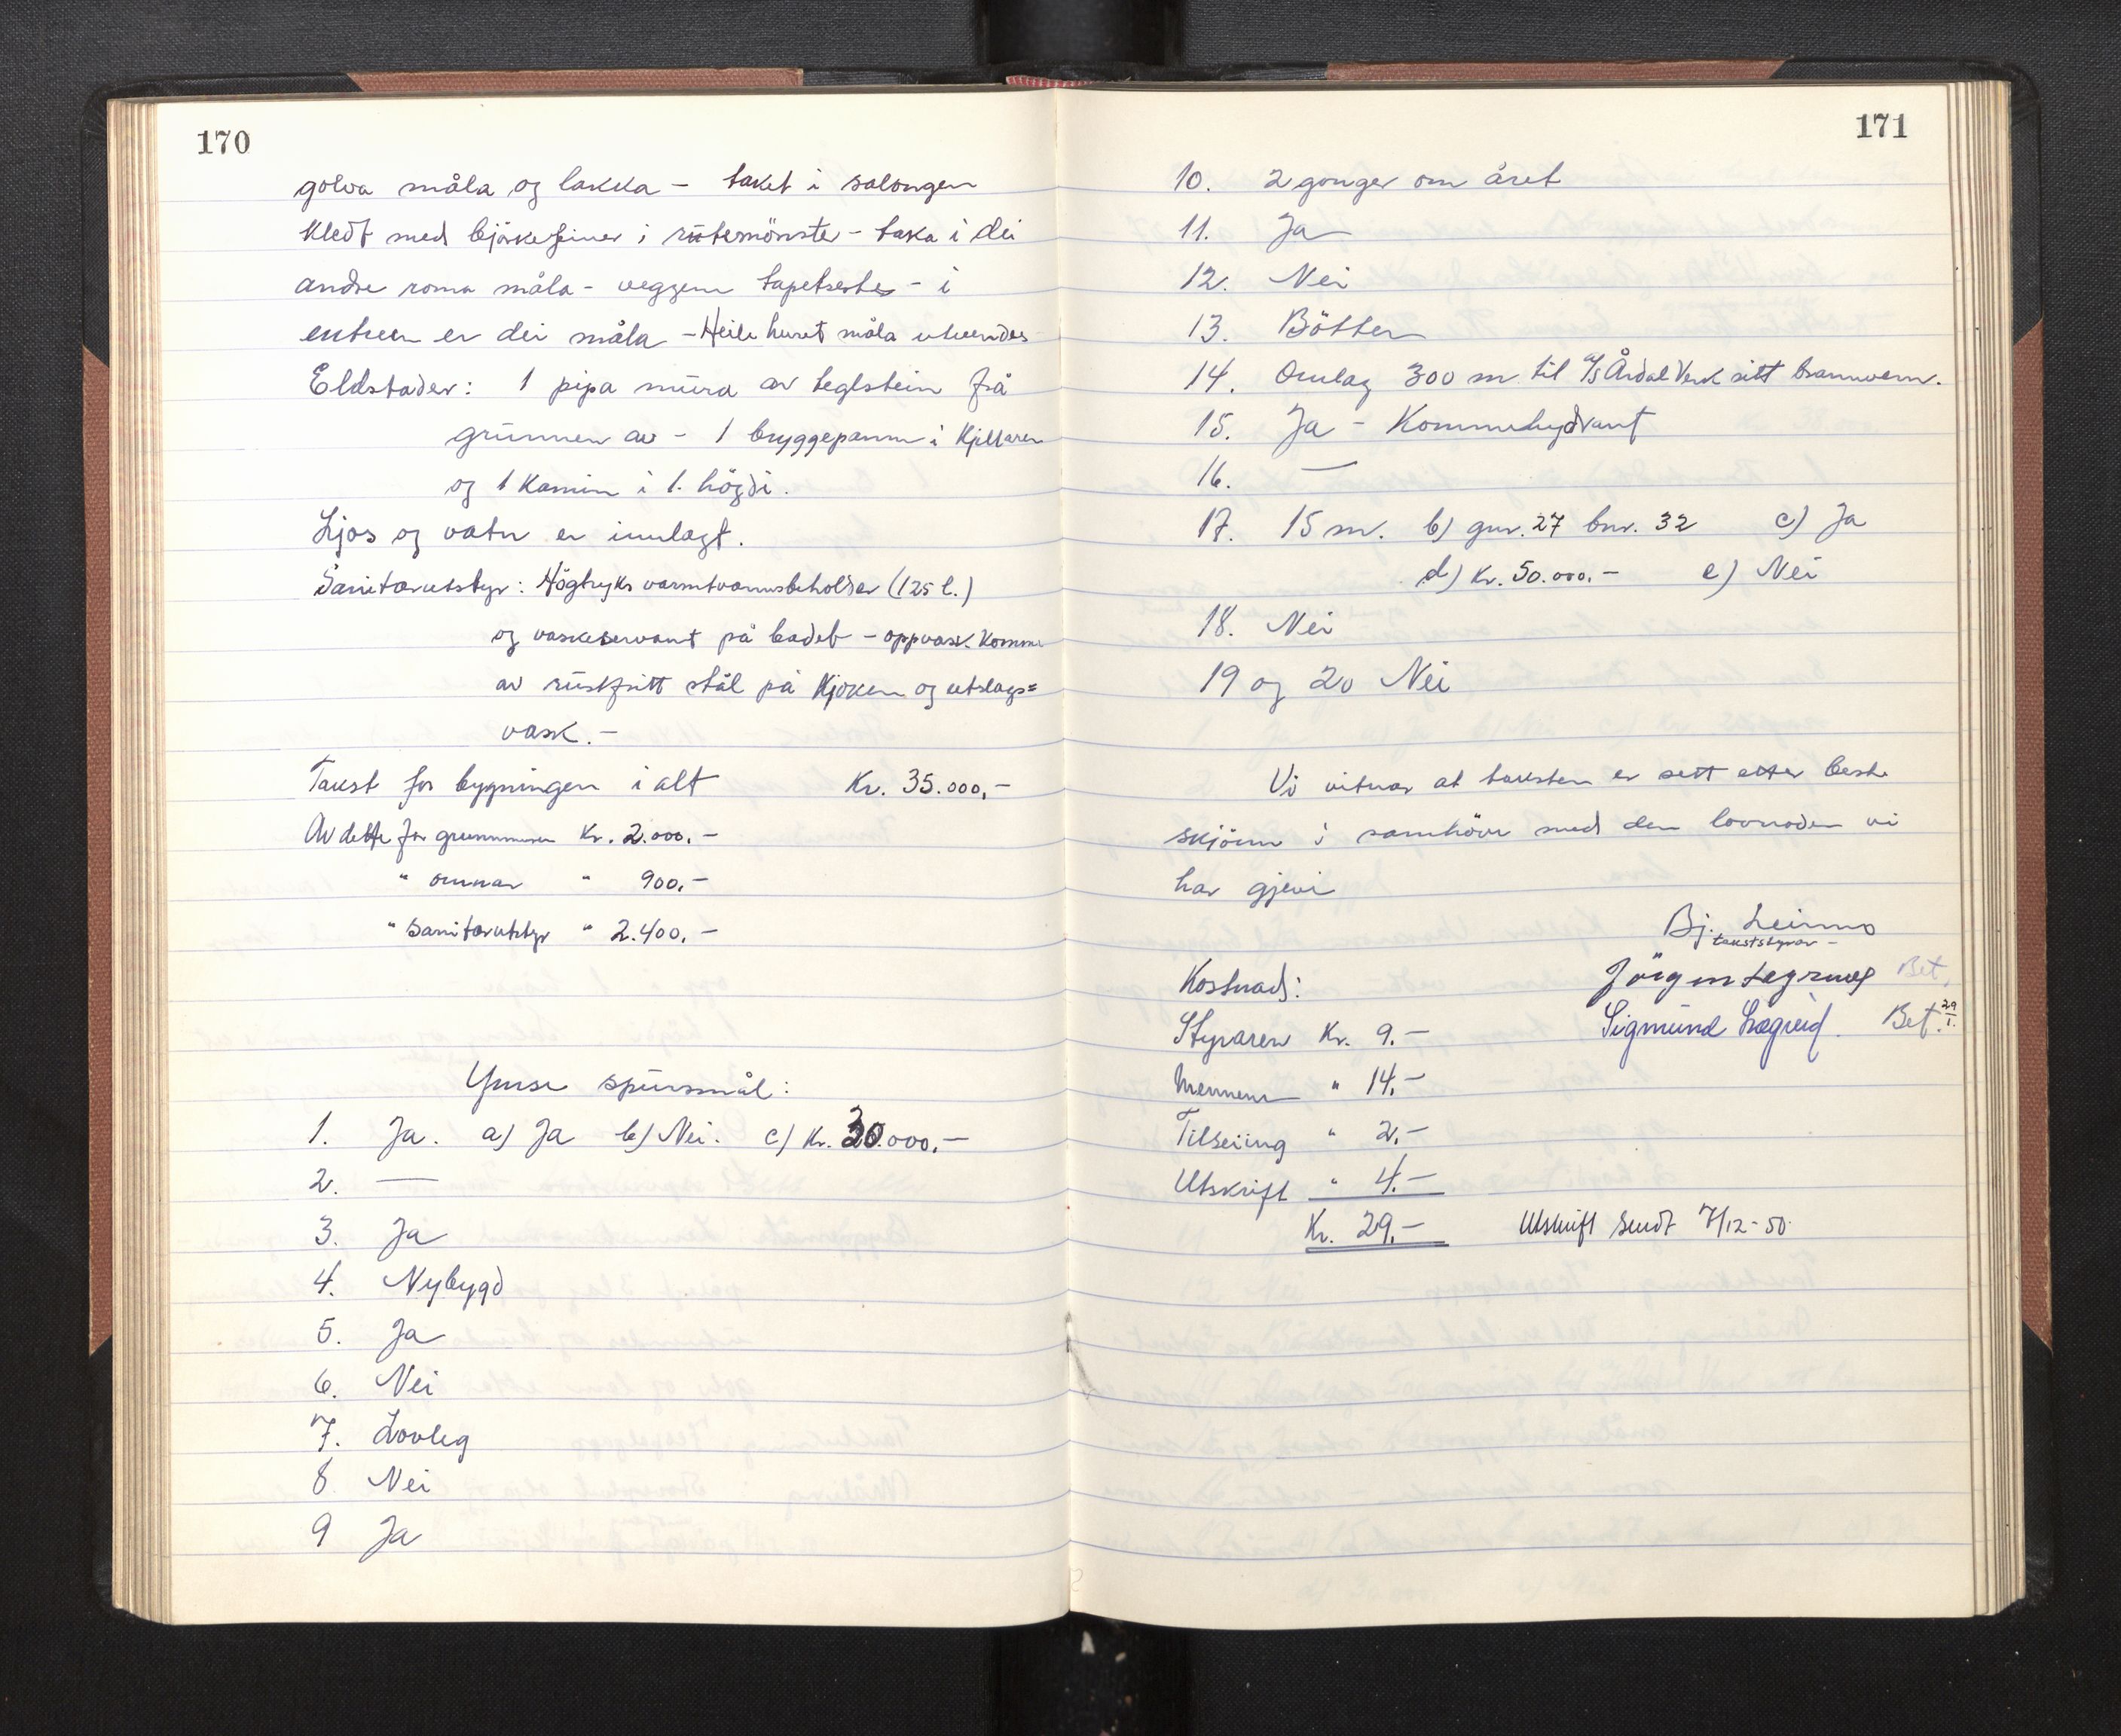 170
golva måla og lakka – taket i salongen
kledt med bjørkefiner i rutemönster – taka i dei
andre roma måla – veggene tapetserte – i
entreen er dei måla – Heile huset måla utvendes
Eldstader: 1 pipa mura av teglstein frå
grunnen av – 1 bryggepanne i kjellaren
og 1 kamin i 1. högdi.
Ljos og vatn er innlagt.
Sanitærutstyr: Högtryks varmtvannsbeholder (125 l.)
og vaskeservant på badet – oppvask. komme
av rustfritt stål på kjøken og utslags=
vask. –
Takst for bygningen i alt Kr. 35.000,–
Av dette for grunnmuren Kr. 2.000.–
" omnar " 900,–
" sanitærutstyr " 2.400,–
Ymse spursmål:
1. Ja. a) Ja b) Nei. c) Kr. 30.000,–
2. —
3. Ja
4. Nybygd
5. Ja
6. Nei
7. Lovleg
8 Nei
9 Ja
171
10. 2 gonger om året
11. Ja
12. Nei
13. Bötter
14. Omlag 300 m til A/S Årdal Verk sitt brannvern.
15. Ja – Kommehydrant
16. —
17. 15 m. b) gnr. 27 bnr. 32 c) Ja
d) Kr. 50.000.– e) Nei
18. Nei
19 og 20 Nei
Vi vitnar at taksten er sett etter beste
skjönn i samhöve med den lovnaden vi
har gjevi
Bj. Leirmo
takststyrar –
Kostnad:
Bet.
Styraren Kr. 9.–
Sigmund Lægreid. Bet. 29/1.
Mennene " 14.–
Tilseiing " 2.–
Utskrift " 4.–
Kr. 29.– Utskrift sendt 7/12-50.